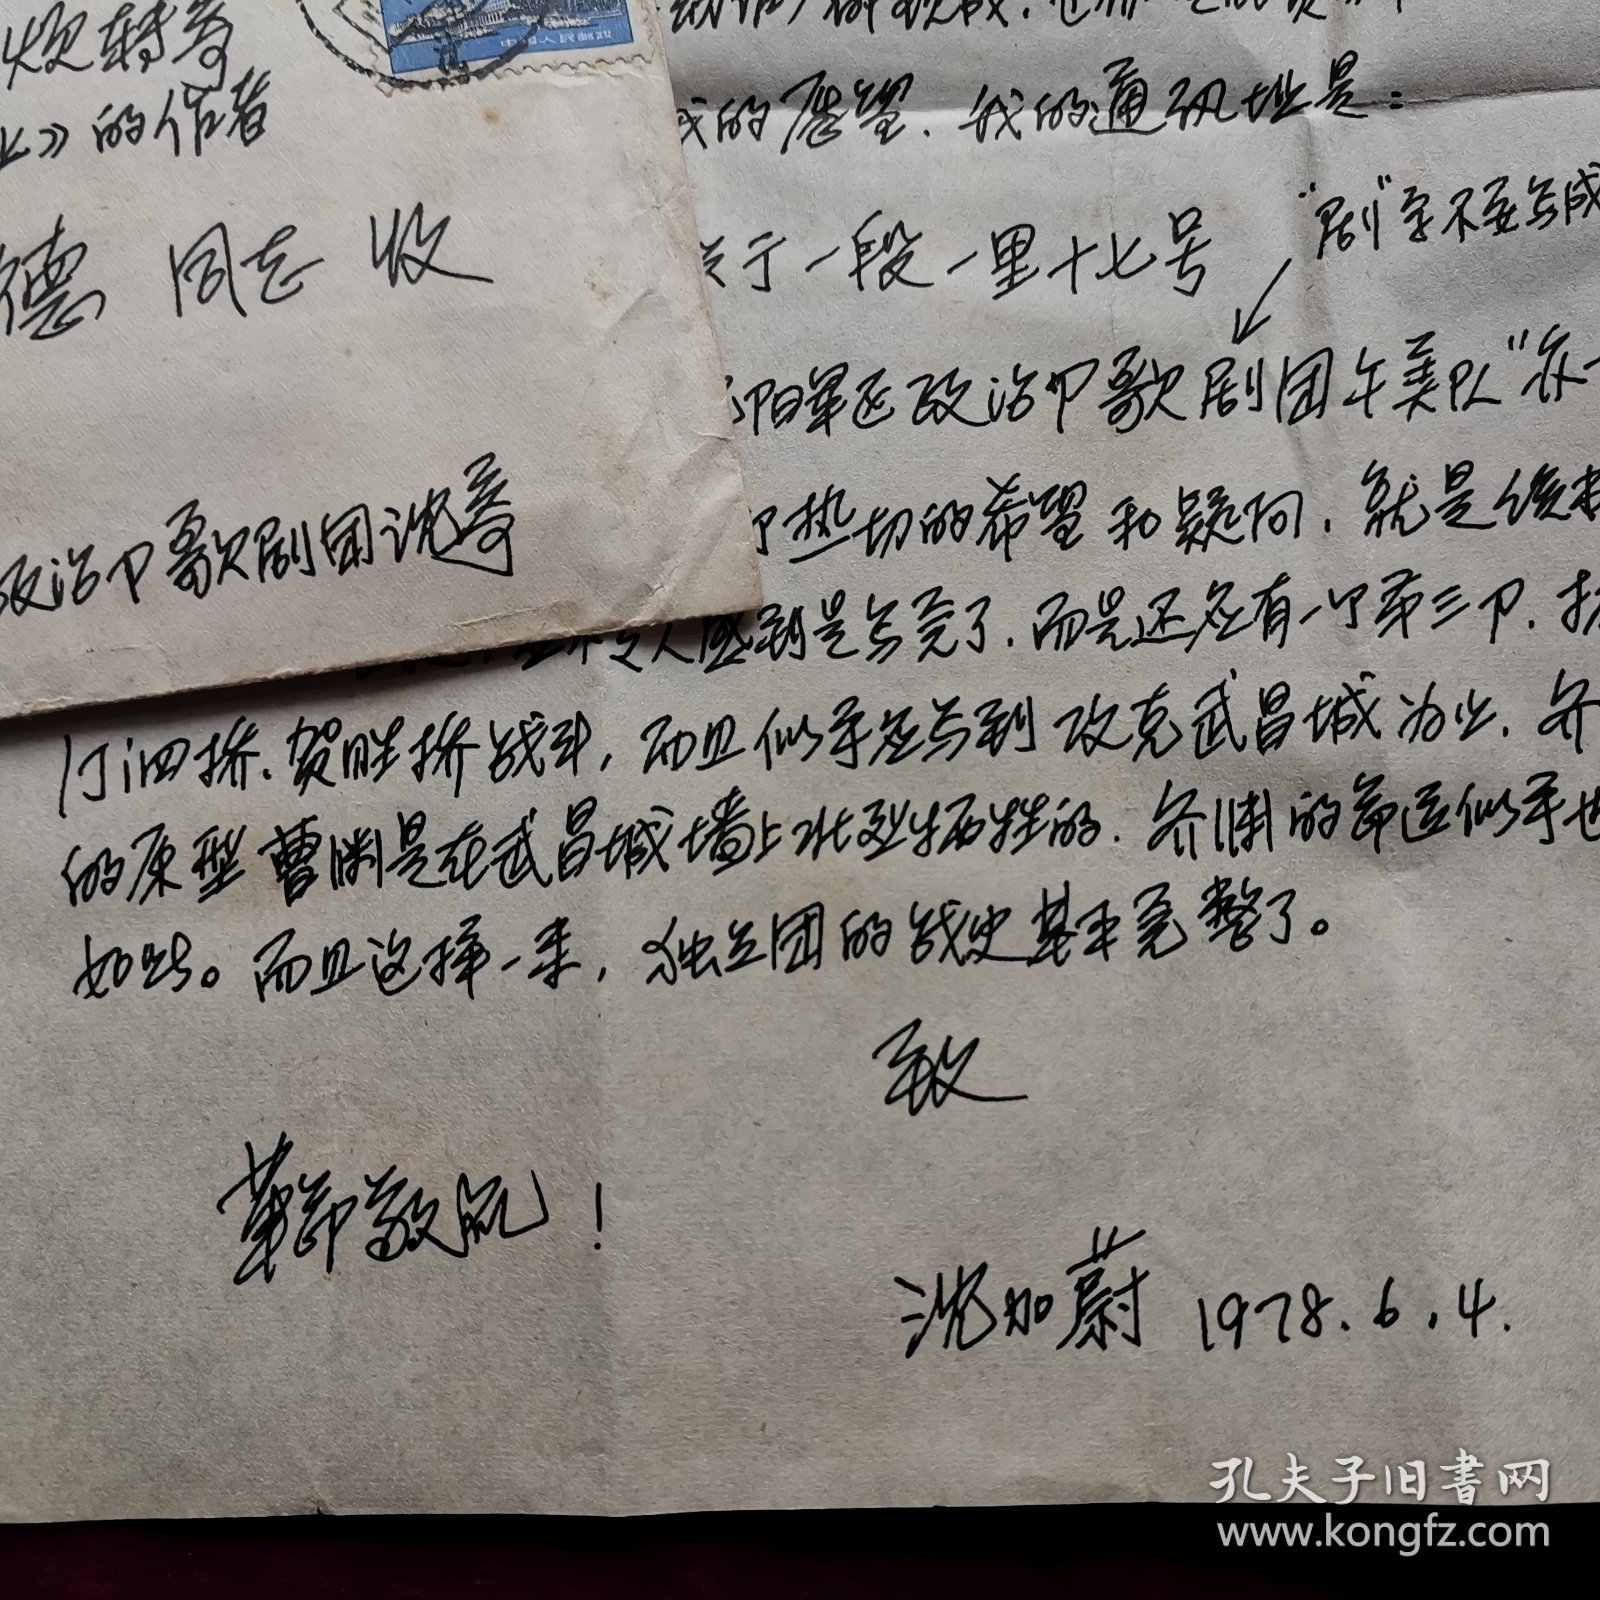 烦转寄
》的作者
德 同志 收
政治部歌剧团沈寄
中国人民邮政
我的愿望.我的通讯址是:
一段一里十七号
"剧"字不要写成
阳军区政治部歌剧团午美队"
热切的希望和疑问,就是续
人感到是写完了.而是还应有一个第三部.
汀泗桥.贺胜桥战斗,而且似乎应写到攻克武昌城为止.齐
的原型曹渊是在武昌城墙上壮烈牺牲的.齐渊的命运似乎也
如此。而且这样一来,独立团的战史基本完整了。
致
革命敬礼!
沈加蔚 1978.6.4.
孔夫子旧书网
www.kongfz.com